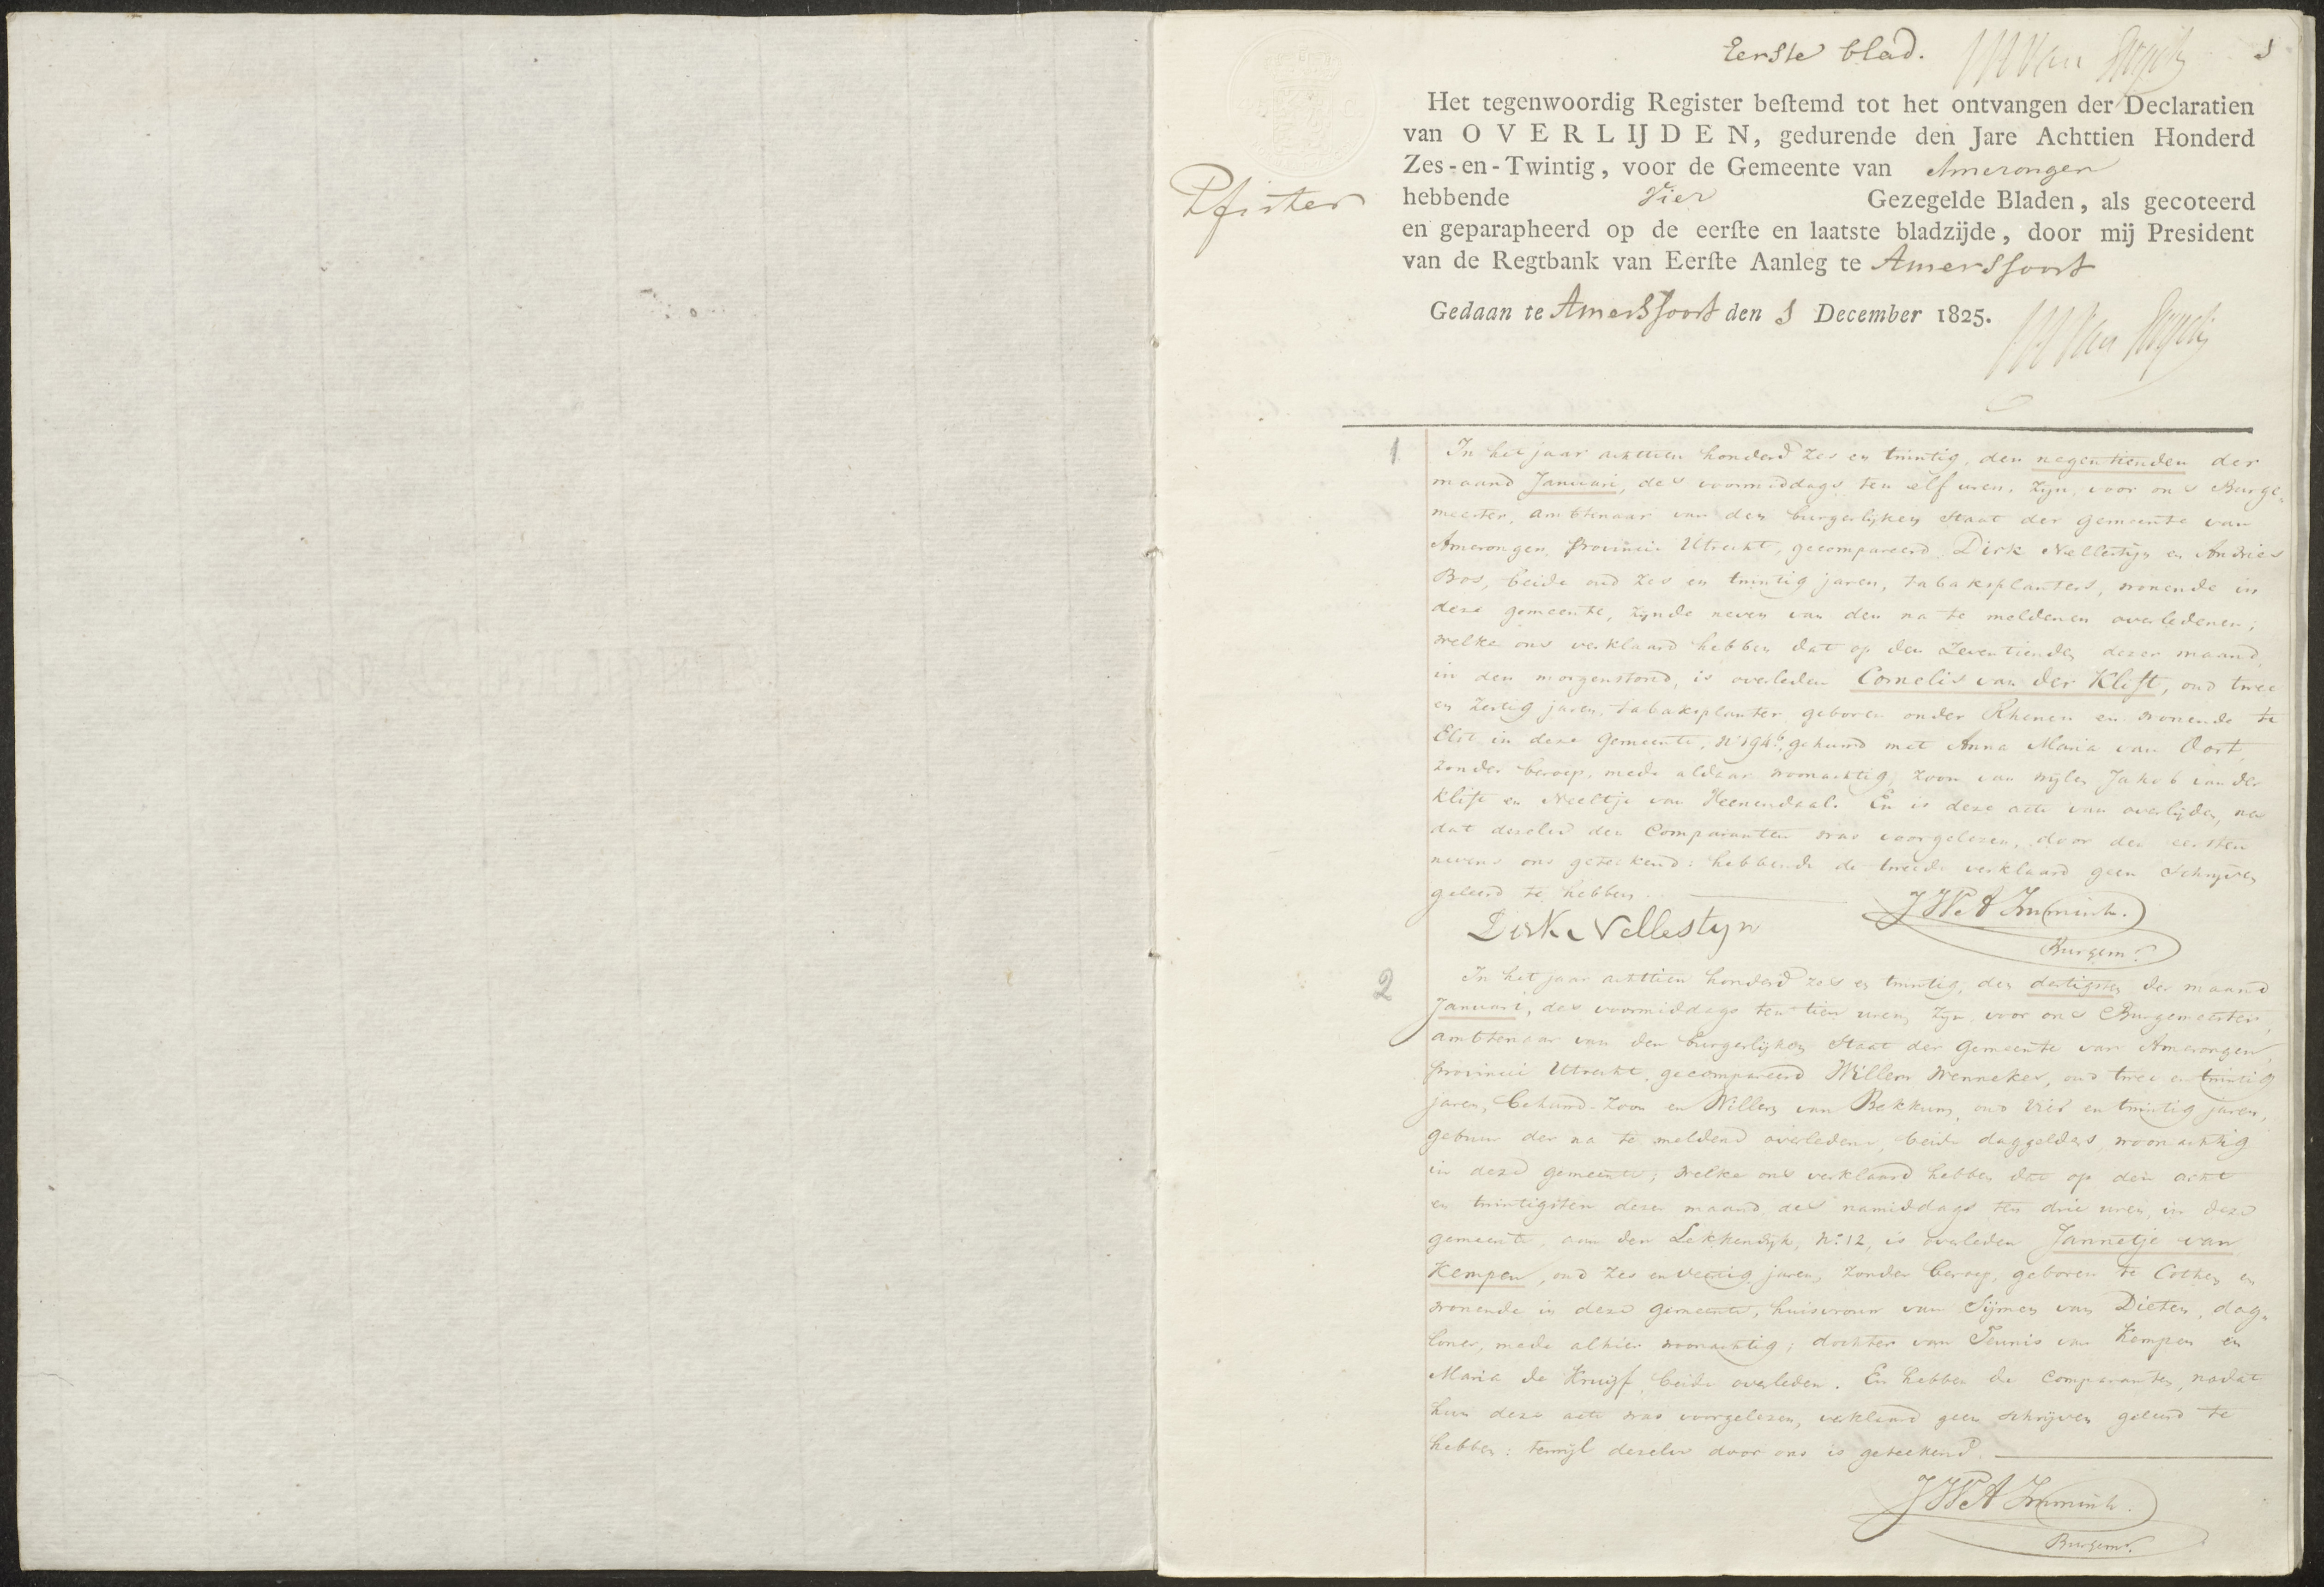 Eerste blad.
1
Het tegenwoordig Register beſtemd tot het ontvangen der Declaratien
van OVERLIJDEN, gedurende den Jare Achttien Honderd
Zes-en-Twintig, voor de Gemeente van Amerongen
Pfister
hebbende Vier Gezegelde Bladen, als gecoteerd
en geparapheerd op de eerſte en laatste bladzijde, door mij President
van de Regtbank van Eerſte Aanleg te Amersfoort
Gedaan te Amersfoort den 1 December 1825.
1
In het jaar achttien honderd zes en twintig, den negentienden der
maand Januari, des voormiddags ten elf uren, zijn, voor ons Burge=
meester, ambtenaar van den burgerlijken Staat der gemeente van
Amerongen, provincie Utrecht, gecompareerd, Dirk Nellestijn en Andries
Bos, beide oud zes en twintig jaren, tabaksplanters, wonende in
deze gemeente, zijnde neven van den na te meldenen overledenen;
welke ons verklaard hebben dat op den Zeventienden dezer maand,
in den morgenstond, is overleden Cornelis van der Klift, oud twee
en zestig jaren, tabaksplanter, geboren onder Rhenen en wonende te
Elst in deze gemeente, gehuwd met Anna Maria van Oort,
zonder beroep, mede aldaar woonachtig, zoon van wijlen Jakob van der
Klift en Neeltje van Veenendaal. En is deze acte van overlijden, na
dat dezelve den Comparanten was voorgelezen, door den eersten
nevens ons geteekend: hebbende de tweede verklaard geen Schrijven
geleerd te hebben.
Dirk Nellestyn
JWA Immink.
Burgem.r
2
In het jaar achttien honderd zes en twintig, den dertigsten der maand
Januari, des voormiddags ten tien uren, zijn, voor ons Burgemeester,
ambtenaar van den burgerlijken Staat der Gemeente van Amerongen,
provincie Utrecht, gecompareerd Willem Wenneker, oud twee en twintig
jaren, behuwd-zoon en Willem van Bekkum, oud vier en twintig jaren,
gebuur der na te meldend overledene, beide daggelders, woonachtig
in deze gemeente; welke ons verklaard hebben dat op den acht
en twintigsten dezer maand, des namiddags ten drie uren, in deze
gemeente, aan den Lekkendijk, N.o 12, is overleden Jannetje van
Kempen, oud zes en veertig jaren, zonder beroep, geboren te Cothen en
wonende in deze gemeente, huisvrouw van Sijmen van Dieten, dag=
loner, mede alhier woonachtig; dochter van Teunis van Kempen en
Maria de Kruijf, beide overleden. En hebben de Comparanten, nadat
hun deze acte was voorgelezen, verklaard geen schrijven geleerd te
hebben: terwijl dezelve door ons is geteekend.
JWA Immink.
Burgem.r